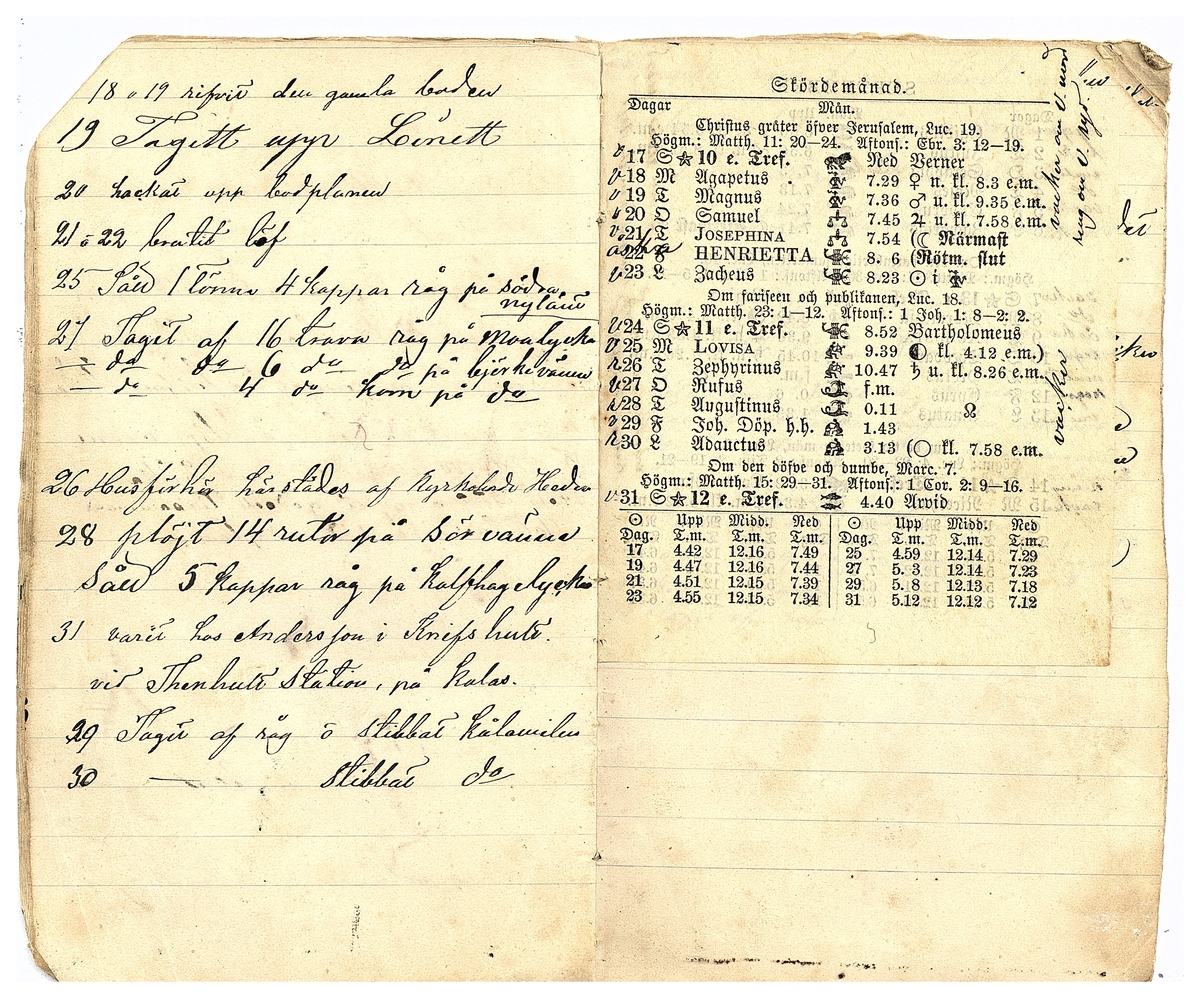 18 o 19 rifvit den gamla boden
19 Tagett upp Linett
20 hackat upp bodplanen
21 o 22 brutit löf
25 Såd 1 tönna 4 kappar råg på södra
nylånd
27 Tagit af 16 trava råg på
— do do 6 do do på björkevänna
— do 4 do korn på do
26 Husförhör härstädes af
28 plöjt 14 rutor på Sörvänna
Såd 5 kappar råg på kalfhagelycka
31 varit hos Andersson i Knifshult.
vid Thenhult Station, på kalas.
29 Tagit af råg o stibbat kålamilen
30 — stibbat do
Skördemånad.
Dagar Mån.
Christus gråter öfver Jerusalem, Luc. 19.
Högm.: Matth. 11: 20—24. Aftons.: Ebr. 3: 12—19.
17 S☆10 e. Tref. Ned Verner
18 M Agapetus 7.29 ♀ n. kl. 8.3 e.m.
19 T Magnus 7.36 ♂ u. kl. 9.35 e.m.
20 O Samuel 7.45 ♃ u. kl. 7.58 e.m.
21 T JOSEPHINA 7.54 (☾ Närmast
22 F HENRIETTA 8. 6 (Rötm. slut
23 L Zacheus 8.23 ☉ i ♍
Om fariseen och publikanen, Luc. 18.
Högm.: Matth. 23: 1—12. Aftons.: 1 Joh. 1: 8—2: 2.
24 S☆11 e. Tref. 8.52 Bartholomeus
25 M LOVISA 9.39 kl. 4.12 e.m.)
26 T Zephyrinus 10.47 ♄ u. kl. 8.26 e.m.
27 O Rufus f.m.
28 T Augustinus 0.11 ☊
29 F Joh. Döp. h.h. 1.43
30 L Adauctus 3.13 (○ kl. 7.58 e.m.
Om den döfve och dumbe, Marc. 7.
Högm.: Matth. 15: 29—31. Aftons.: 1 Cor. 2: 9—16.
31 S☆12 e. Tref. 4.40 Arvid
☉ Upp Midd. Ned ☉ Upp Midd. Ned
Dag. T.m. T.m. T.m. Dag. T.m. T.m. T.m.
17 4.42 12.16 7.49 25 4.59 12.14 7.29
19 4.47 12.16 7.44 27 5. 3 12.14 7.23
21 4.51 12.15 7.39 29 5. 8 12.13 7.18
23 4.55 12.15 7.34 31 5.12 12.12 7.12
vacker